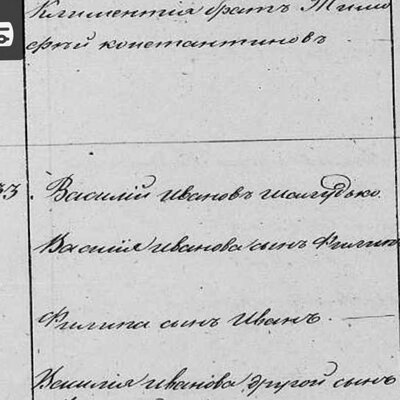 Климентія братъ Тимо
ѳей константиновъ
33 Василій Ивановъ шолудько.
Василія Иванова сынъ Филипъ
Филипа сынъ Иванъ. —
Василія Иванова другой сынъ